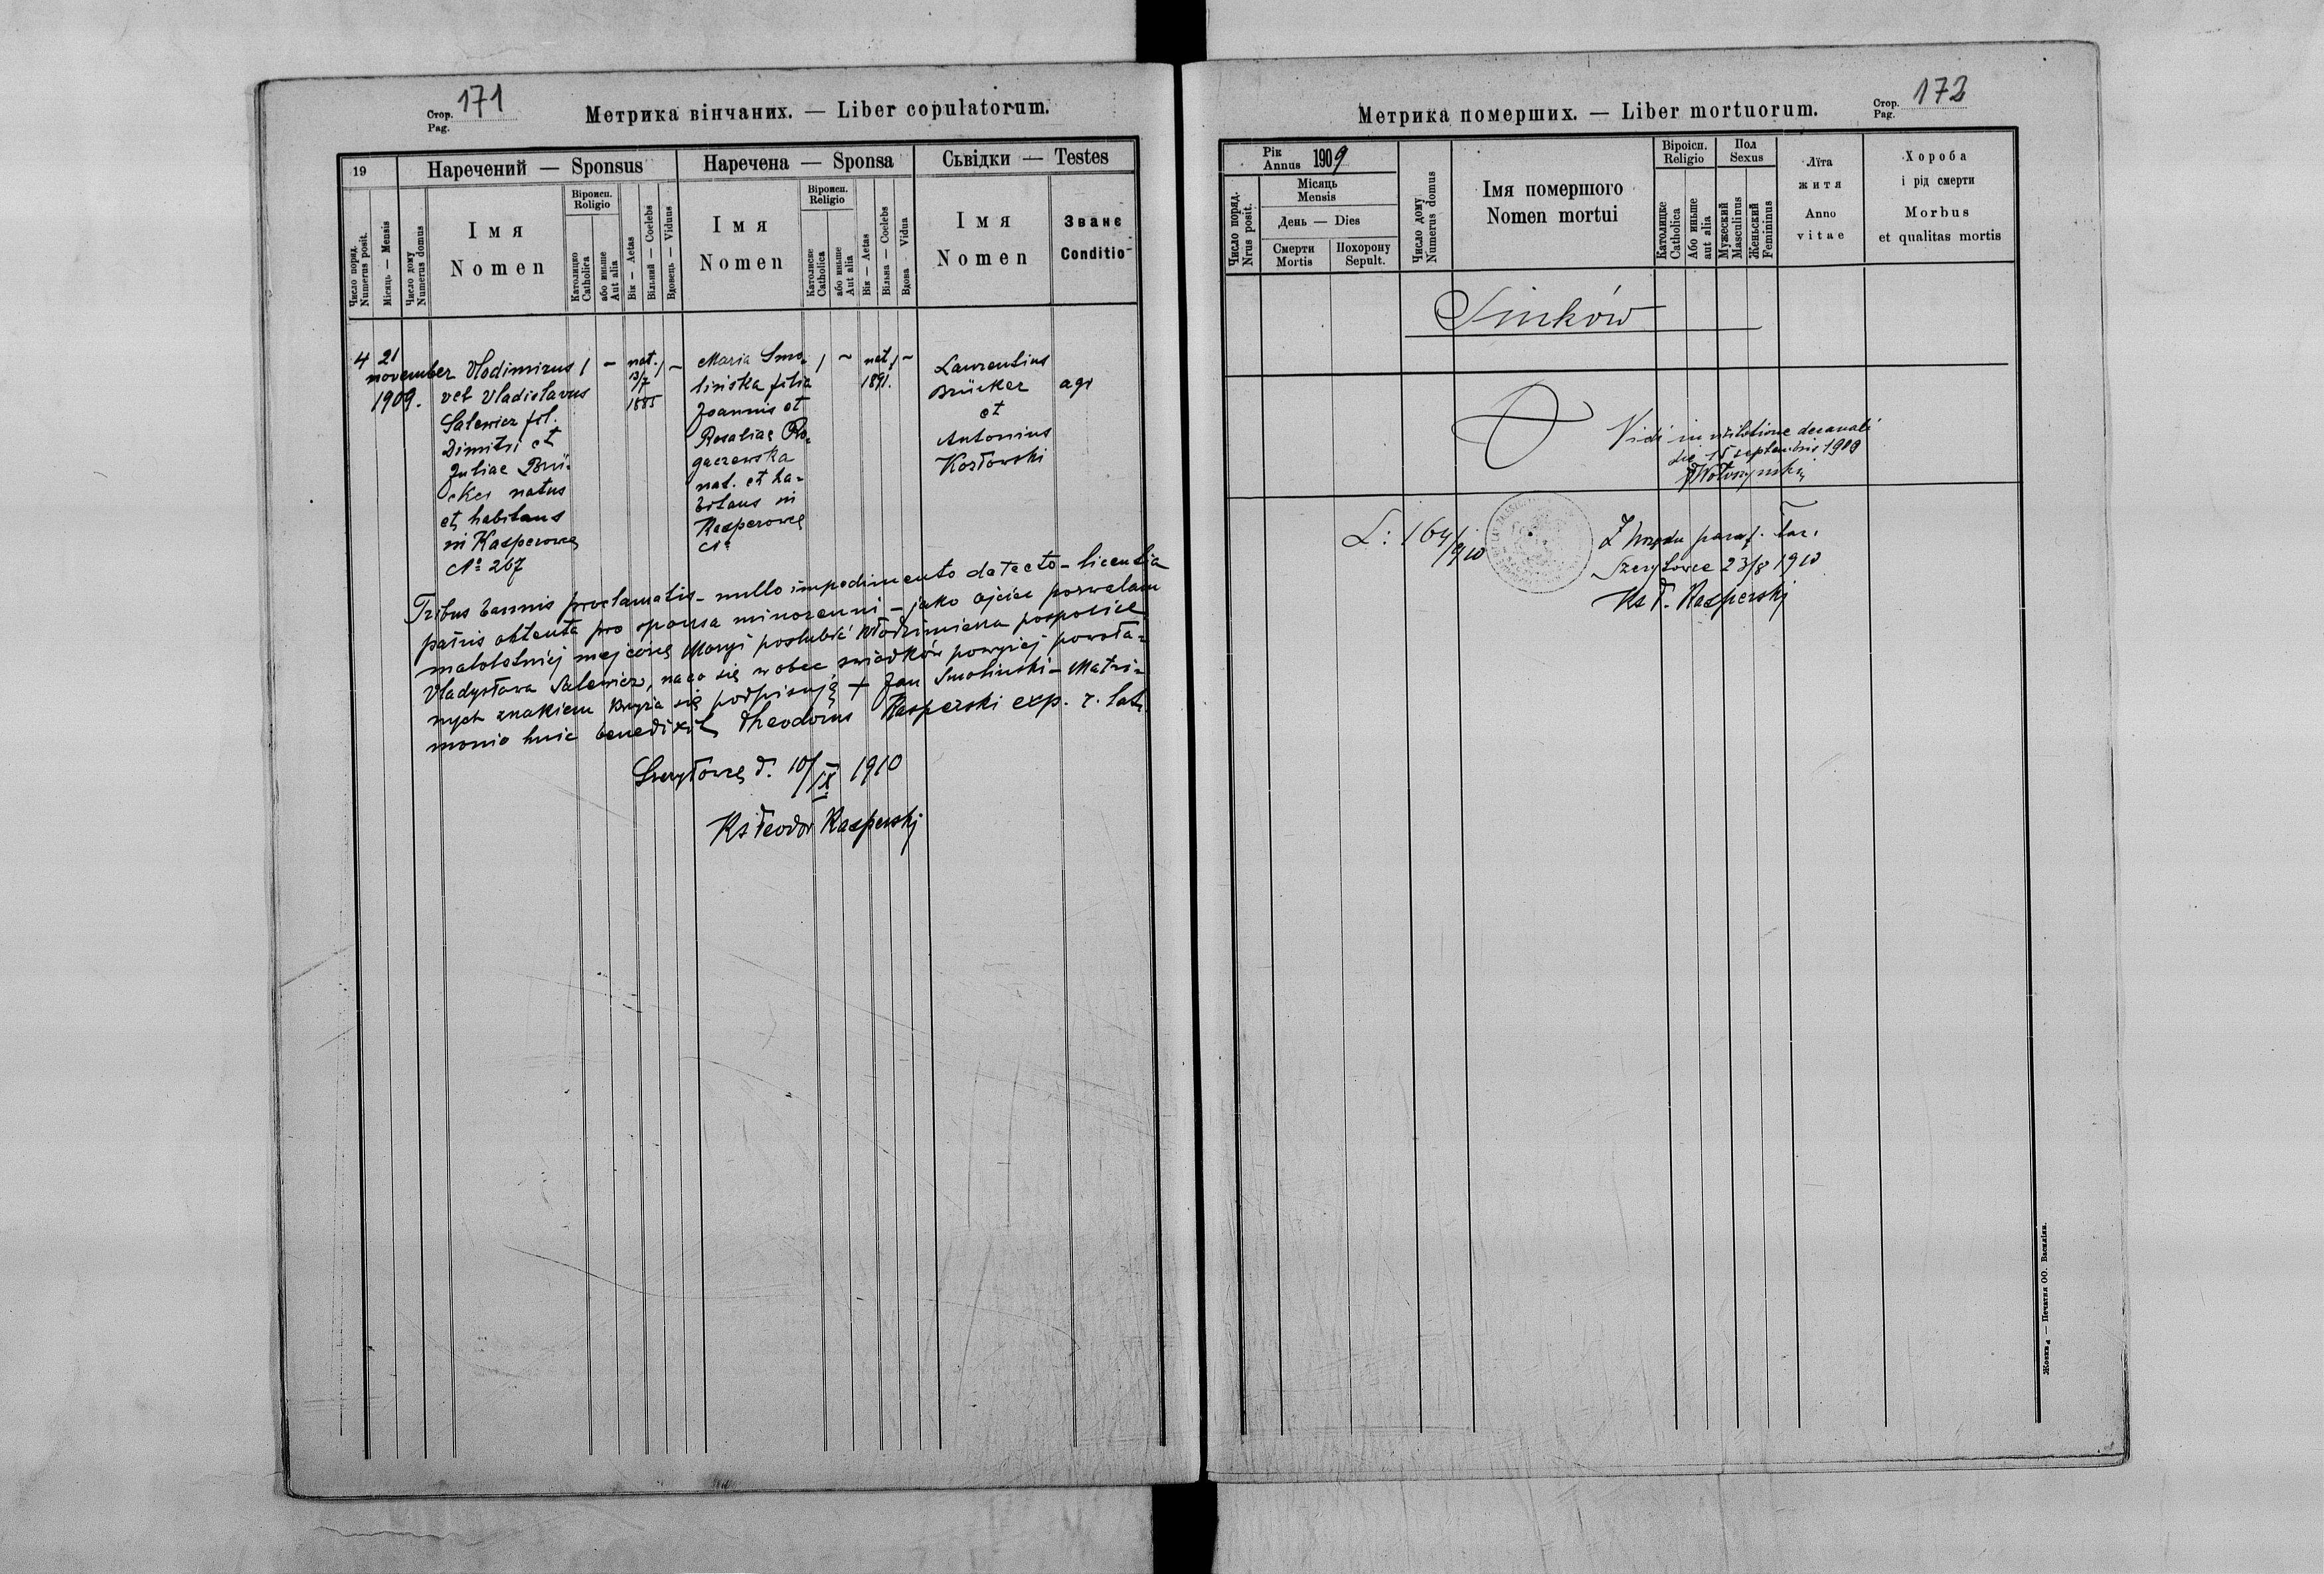 Стор. Pag. 171
Метрика вінчаних. — Liber copulatorum.
19
Наречений — Sponsus
Наречена — Sponsa
Сьвідки — Testes
Число поряд. Numerus posit.
Місяць — Mensis
Число дому Numerus domus
Імя Nomen
Віроисп. Religio
Католицко Catholica
або иньше Aut alia
Вік — Aetas
Вільний — Coelebs
Вдовець — Viduus
Імя Nomen
Віроисп. Religio
Католиске Catholica
або иньше Aut alia
Вік — Aetas
Вільна — Coelebs
Вдова Vidua
Імя Nomen
Званє Conditio
4 21
november
1909.
Vlodimirus
vel Vladislavus
Salewicz fil.
Dimitri et
Juliae Brü-
cker natus
et habitans
in Kasperowce
No 267
/ – nat. 13/7 1885 / ~
Maria Smo-
lińska filia
Joannis et
Rosaliae Ro-
gaczewska
nat. et ha-
bitans in
Kasperowce
No
/ ~ nat. 1891. / ~
Laurentius
Brücker
et
Antonius
Kozłowski
agr
Tribus bannis proclamatis – nullo impedimento detecto – licentia
patris obtenta pro sponsa minorenni – jako ojciec pozwalam
małoletniej mej córce Maryi poślubić Włodzimierza pospolicie
Vladysława Salewicz, na co się w obec świadków powyżej powoła-
nych znakiem krzyża się podpisuję + Jan Smoliński – Matri-
monio huic benedixit Theodorus Kasperski exp. r. lat.
Szczytowce d. 10/IX 1910
Ks Teodor Kasperski
Стор. Pag. 172
Метрика померших. — Liber mortuorum.
Рік Annus 1909
Число поряд. Nrus posit.
Місяць Mensis
День — Dies
Смерти Mortis
Похорону Sepult.
Число дому Numerus domus
Імя помершого
Nomen mortui
Віроісп. Religio
Католицке Catholica
Або иньше aut alia
Пол Sexus
Мужеский Masculinus
Женьский Femininus
Лїта
житя
Anno
vitae
Хороба
і рід смерти
Morbus
et qualitas mortis
Sinków
Vidi in visitatione decanali
die 15 septembris 1909
L: 164/910
Z Urzędu paraf. łac.
Szczytowce 23/8 1910
Ks T. Kasperski
Жовква — Печатня ОО. Василіян.